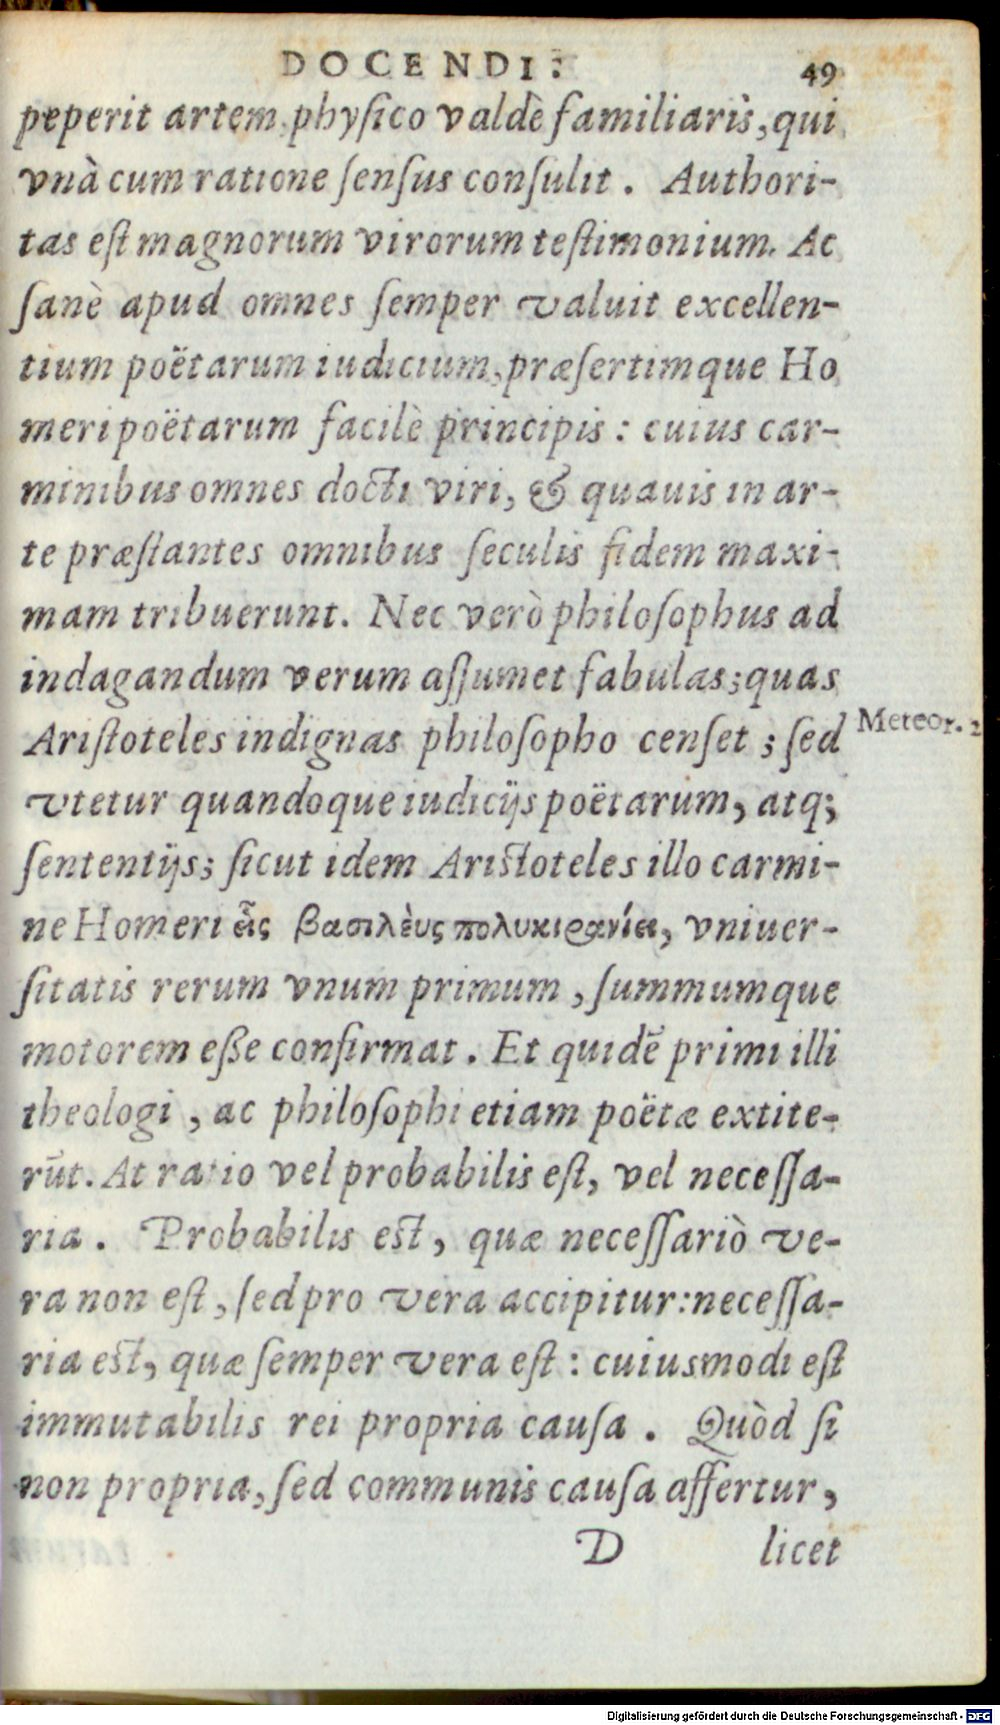 DOCENDI: 49
peperit artem, physico valdè familiaris, qui
vnà cum ratione sensus consulit. Authori-
tas est magnorum virorum testimonium. Ac
sanè apud omnes semper valuit excellen-
tium poëtarum iudicium, præsertimque Ho
meri poëtarum facilè principis: cuius car-
minibus omnes docti viri, & quauis in ar-
te præstantes omnibus seculis fidem maxi-
mam tribuerunt. Nec verò philosophus ad
indagandum verum assumet fabulas; quas
Aristoteles indignas philosopho censet; sed
Meteor. 2
vtetur quandoque iudicijs poëtarum, atq;
sententijs; sicut idem Aristoteles illo carmi-
ne Homeri εἷς βασιλὲυς πολυκιρανίη, vniuer-
sitatis rerum vnum primum, summumque
motorem eße confirmat. Et quidē primi illi
theologi, ac philosophi etiam poëtæ extite-
rūt. At ratio vel probabilis est, vel necessa-
ria. Probabilis est, quæ necessariò ve-
ra non est, sed pro vera accipitur: necessa-
ria est, quæ semper vera est: cuiusmodi est
immutabilis rei propria causa. Quòd si
non propria, sed communis causa affertur,
D licet
Digitalisierung gefördert durch die Deutsche Forschungsgemeinschaft - DFG